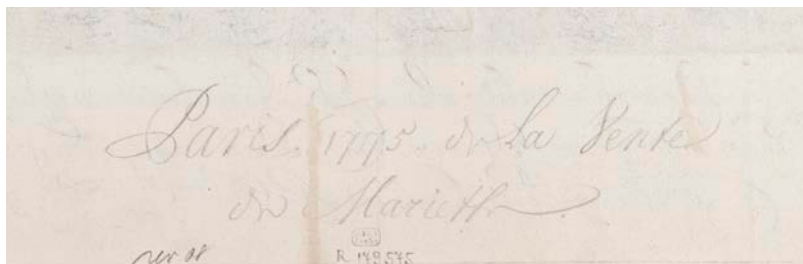 Paris. 1775. de La Vente
de Mariette.
R 179,575